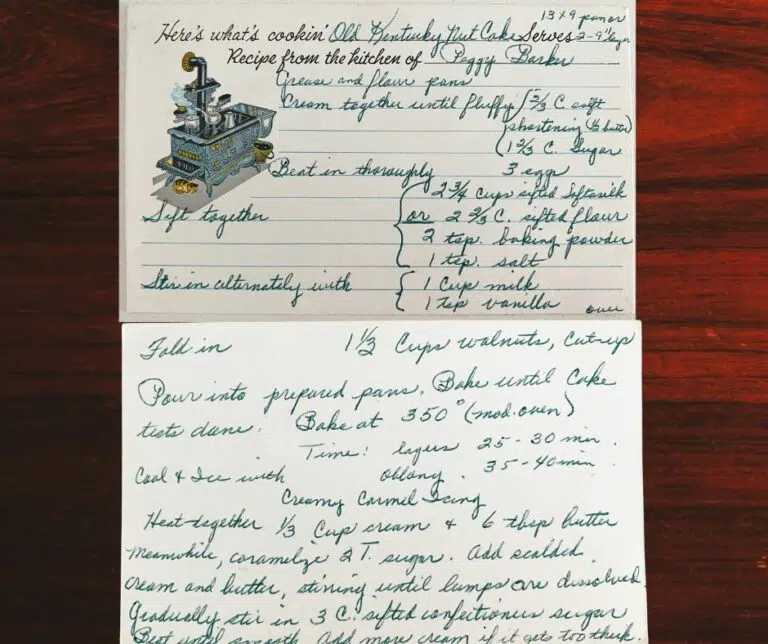 13 x 9 pan or
Here's what's cookin' Old Kentucky Nut Cake Serves 2 - 9" layer
Recipe from the kitchen of Peggy Barker
Grease and flour pans
Cream together until fluffy 2/3 C. soft
shortening (1/2 butter)
1 2/3 C. Sugar
Beat in thoroughly 3 eggs
2 3/4 Cups sifted Softasilk
Sift together or 2 2/3 C. sifted flour
2 tsp. baking powder
1 tsp. salt
Stir in alternately with 1 Cup milk
1 tsp vanilla over
Fold in 1 1/3 Cups walnuts, cut-up
Pour into prepared pans. Bake until Cake
tests done. Bake at 350° (mod. oven)
Time: layers 25 - 30 min.
Cool & Ice with oblong. 35 - 40 min
Creamy Carmel Icing
Heat together 1/3 Cup cream & 6 tbsp butter
Meanwhile, caramelize 2 T. sugar. Add scalded
cream and butter, stirring until lumps are dissolved.
Gradually stir in 3 C. sifted confectioners sugar
Beat until smooth. Add more cream if it gets too thick.